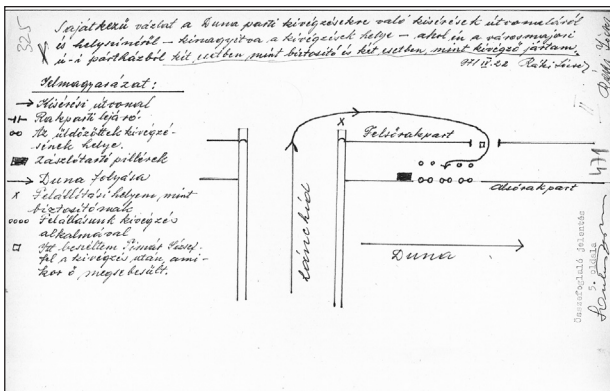 325
Sajátkezű vázlat a Duna parti kivégzésekre való kisérések útvonaláról
és helyszinéről – kinagyitva a kivégzések helye – ahol én a városmajori
u-i pártházból két esetben mint biztositó és két esetben, mint kivégző jártam.
971 II. 22
Jelmagyarázat:
Kisérési útvonal
Rakparti lejáró.
Az üldözöttek kivégzé-
sének helye.
Zászlótartó pillérek
Duna folyása
x Felállitási helyem, mint
biztositónak
Felállásunk kivégzés
alkalmával
Itt beszéltem
fel a kivégzés után, ami-
kor ő, mégsebesült.
x
Felsőrakpart
Alsórakpart
Lánchid
Duna
471
Összefoglaló jelentés
5. oldala